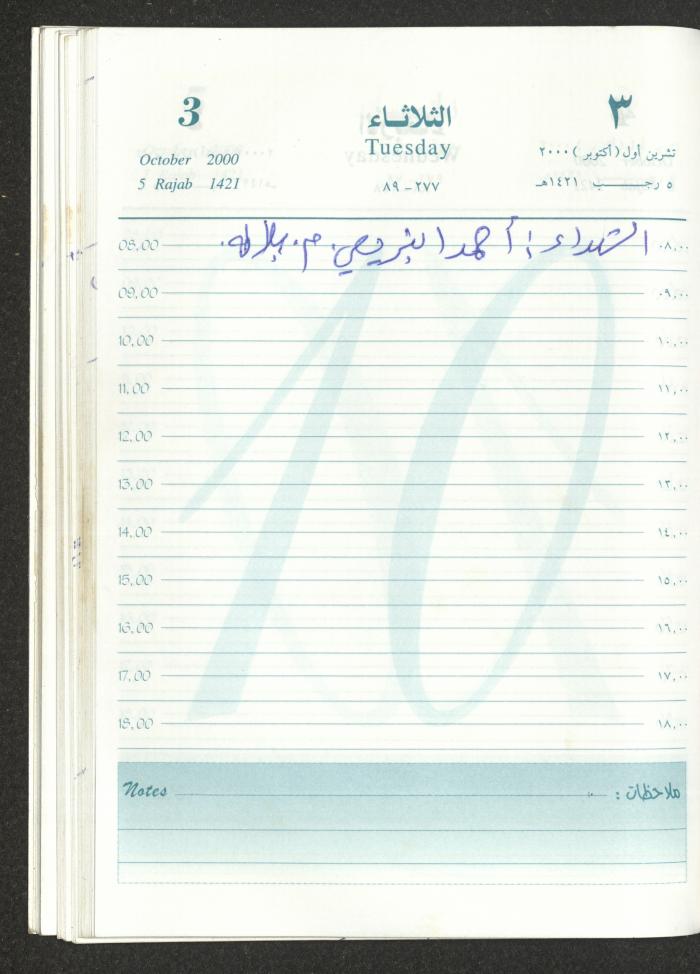 3 الثلاثاء ٣
Tuesday
October 2000 تشرين أول (أكتوبر) ٢٠٠٠
5 Rajab 1421 ٢٧٧ - ٨٩ ٥ رجب ١٤٢١هـ
الشهداء: أحمد م. بلاطه.
08,00 ٠٨,٠٠
09,00 ٠٩,٠٠
10,00 ١٠,٠٠
11,00 ١١,٠٠
12,00 ١٢,٠٠
13,00 ١٣,٠٠
14,00 ١٤,٠٠
15,00 ١٥,٠٠
16,00 ١٦,٠٠
17,00 ١٧,٠٠
18,00 ١٨,٠٠
10
Notes ملاحظات :